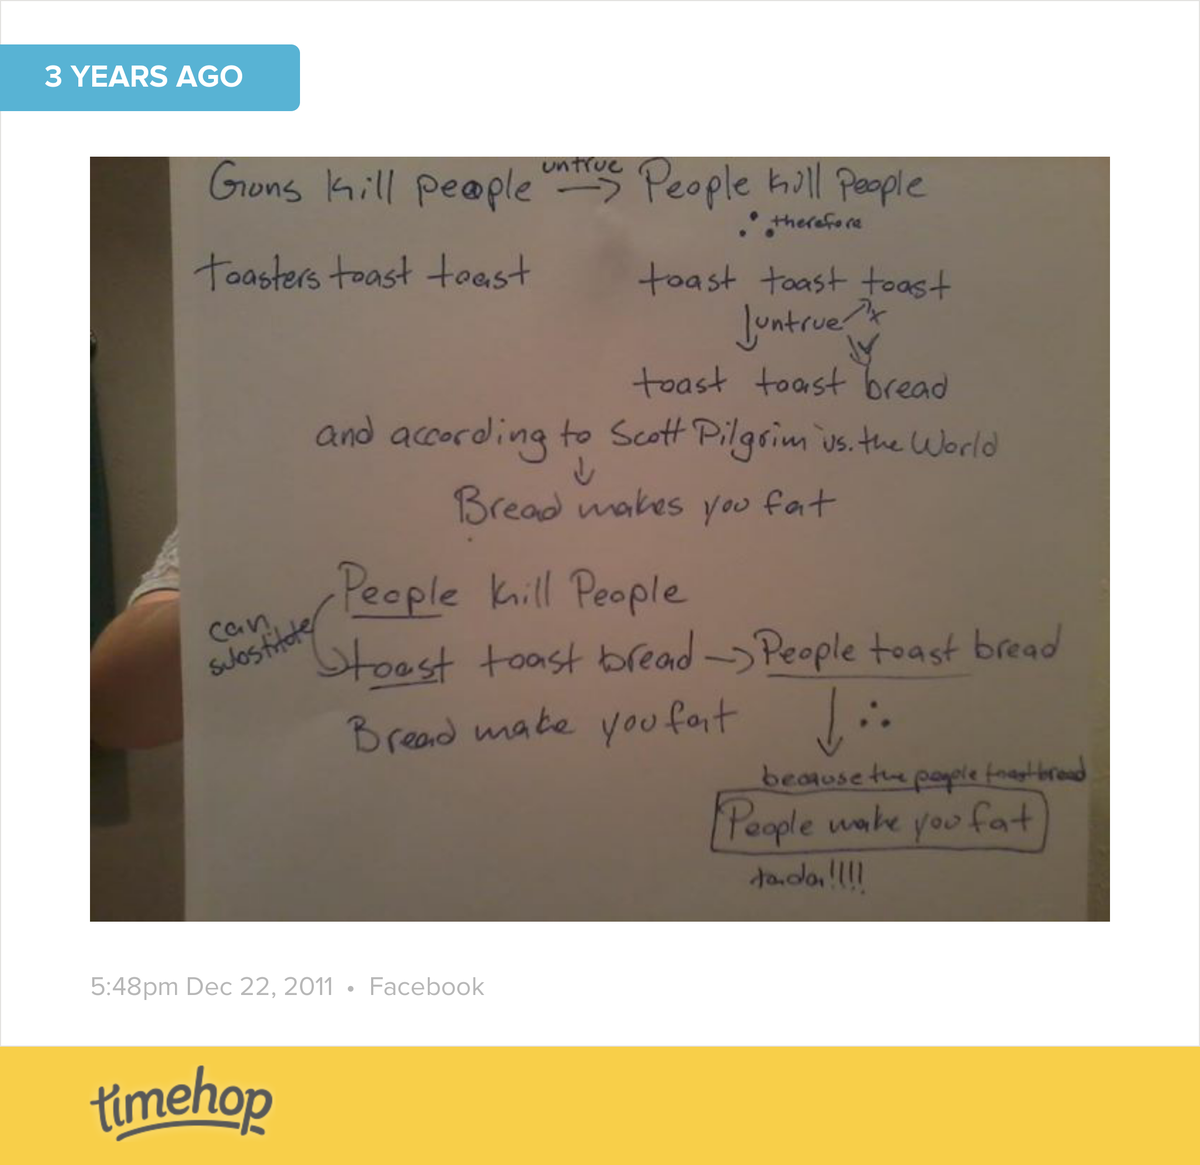 3 YEARS AGO
Guns kill people untrue → People kill People
∴ therefore
Toasters toast toast toast toast toast
↓ untrue ↗x
toast toast bread
and according to Scott Pilgrim vs. the World
↓
Bread makes you fat
People kill People
can substitute
toast toast bread → People toast bread
Bread make you fat ↓ ∴
because the people toast bread
People make you fat
tada!!!!
5:48pm Dec 22, 2011 • Facebook
timehop